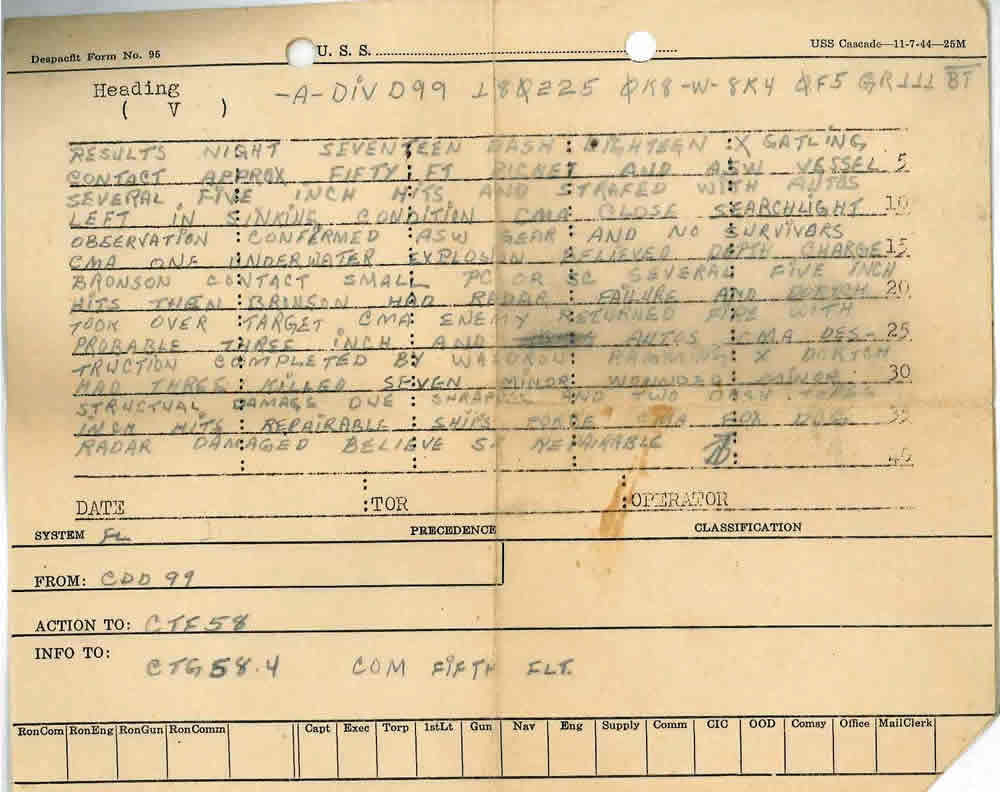 Despacht Form No. 95
U. S. S.
USS Cascade—11-7-44—25M
Heading
( V )
-A- DIV D99 18Ø225 ØK8 -W- 8K4 ØF5 GR111 BT
RESULTS NIGHT SEVENTEEN DASH EIGHTEEN X GATLING
CONTACT APPROX FIFTY FT PICKET AND ASW VESSEL 5
SEVERAL FIVE INCH HITS AND STRAFED WITH AUTOS
LEFT IN SINKING CONDITION CMA CLOSE SEARCHLIGHT 10
OBSERVATION CONFERMED ASW GEAR AND NO SURVIVORS
CMA ONE UNDERWATER EXPLOSION BELIEVED DEPTH CHARGE 15
BRONSON CONTACT SMALL PC OR SC SEVERAL FIVE INCH
HITS THEN BRONSON HAD RADAR FAILURE AND DORTCH 20
TOOK OVER TARGET CMA ENEMY RETURNED FIRE WITH
PROBABLE THREE INCH AND AUTOS CMA DES- 25
TRUCTION COMPLETED BY WALDRON RAMMING X DORTCH
HAD THREE KILLED SEVEN MINOR WOUNDED MINOR 30
STRUCTUAL DAMAGE DUE SHRAPNEL AND TWO DASH THREE
INCH HITS REPAIRABLE SHIPS FORCE CMA FOX DOG 35
RADAR DAMAGED BELIEVE SF REPAIRABLE
40
DATE TOR OPERATOR
SYSTEM FL PRECEDENCE CLASSIFICATION
FROM: CDD 99
ACTION TO: CTF58
INFO TO:
CTG58.4 COM FIFTH FLT.
RonCom RonEng RonGun RonComm Capt Exec Torp 1stLt Gun Nav Eng Supply Comm CIC OOD Comsy Office MailClerk